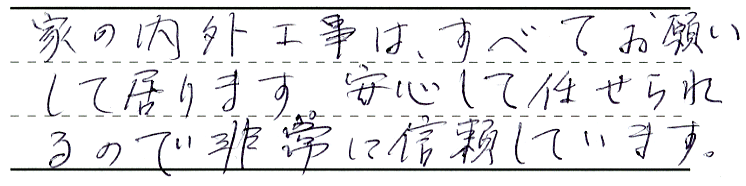 家の内外工事は、すべてお願い
して居ります 安心して任せられ
るので非常に信頼しています。